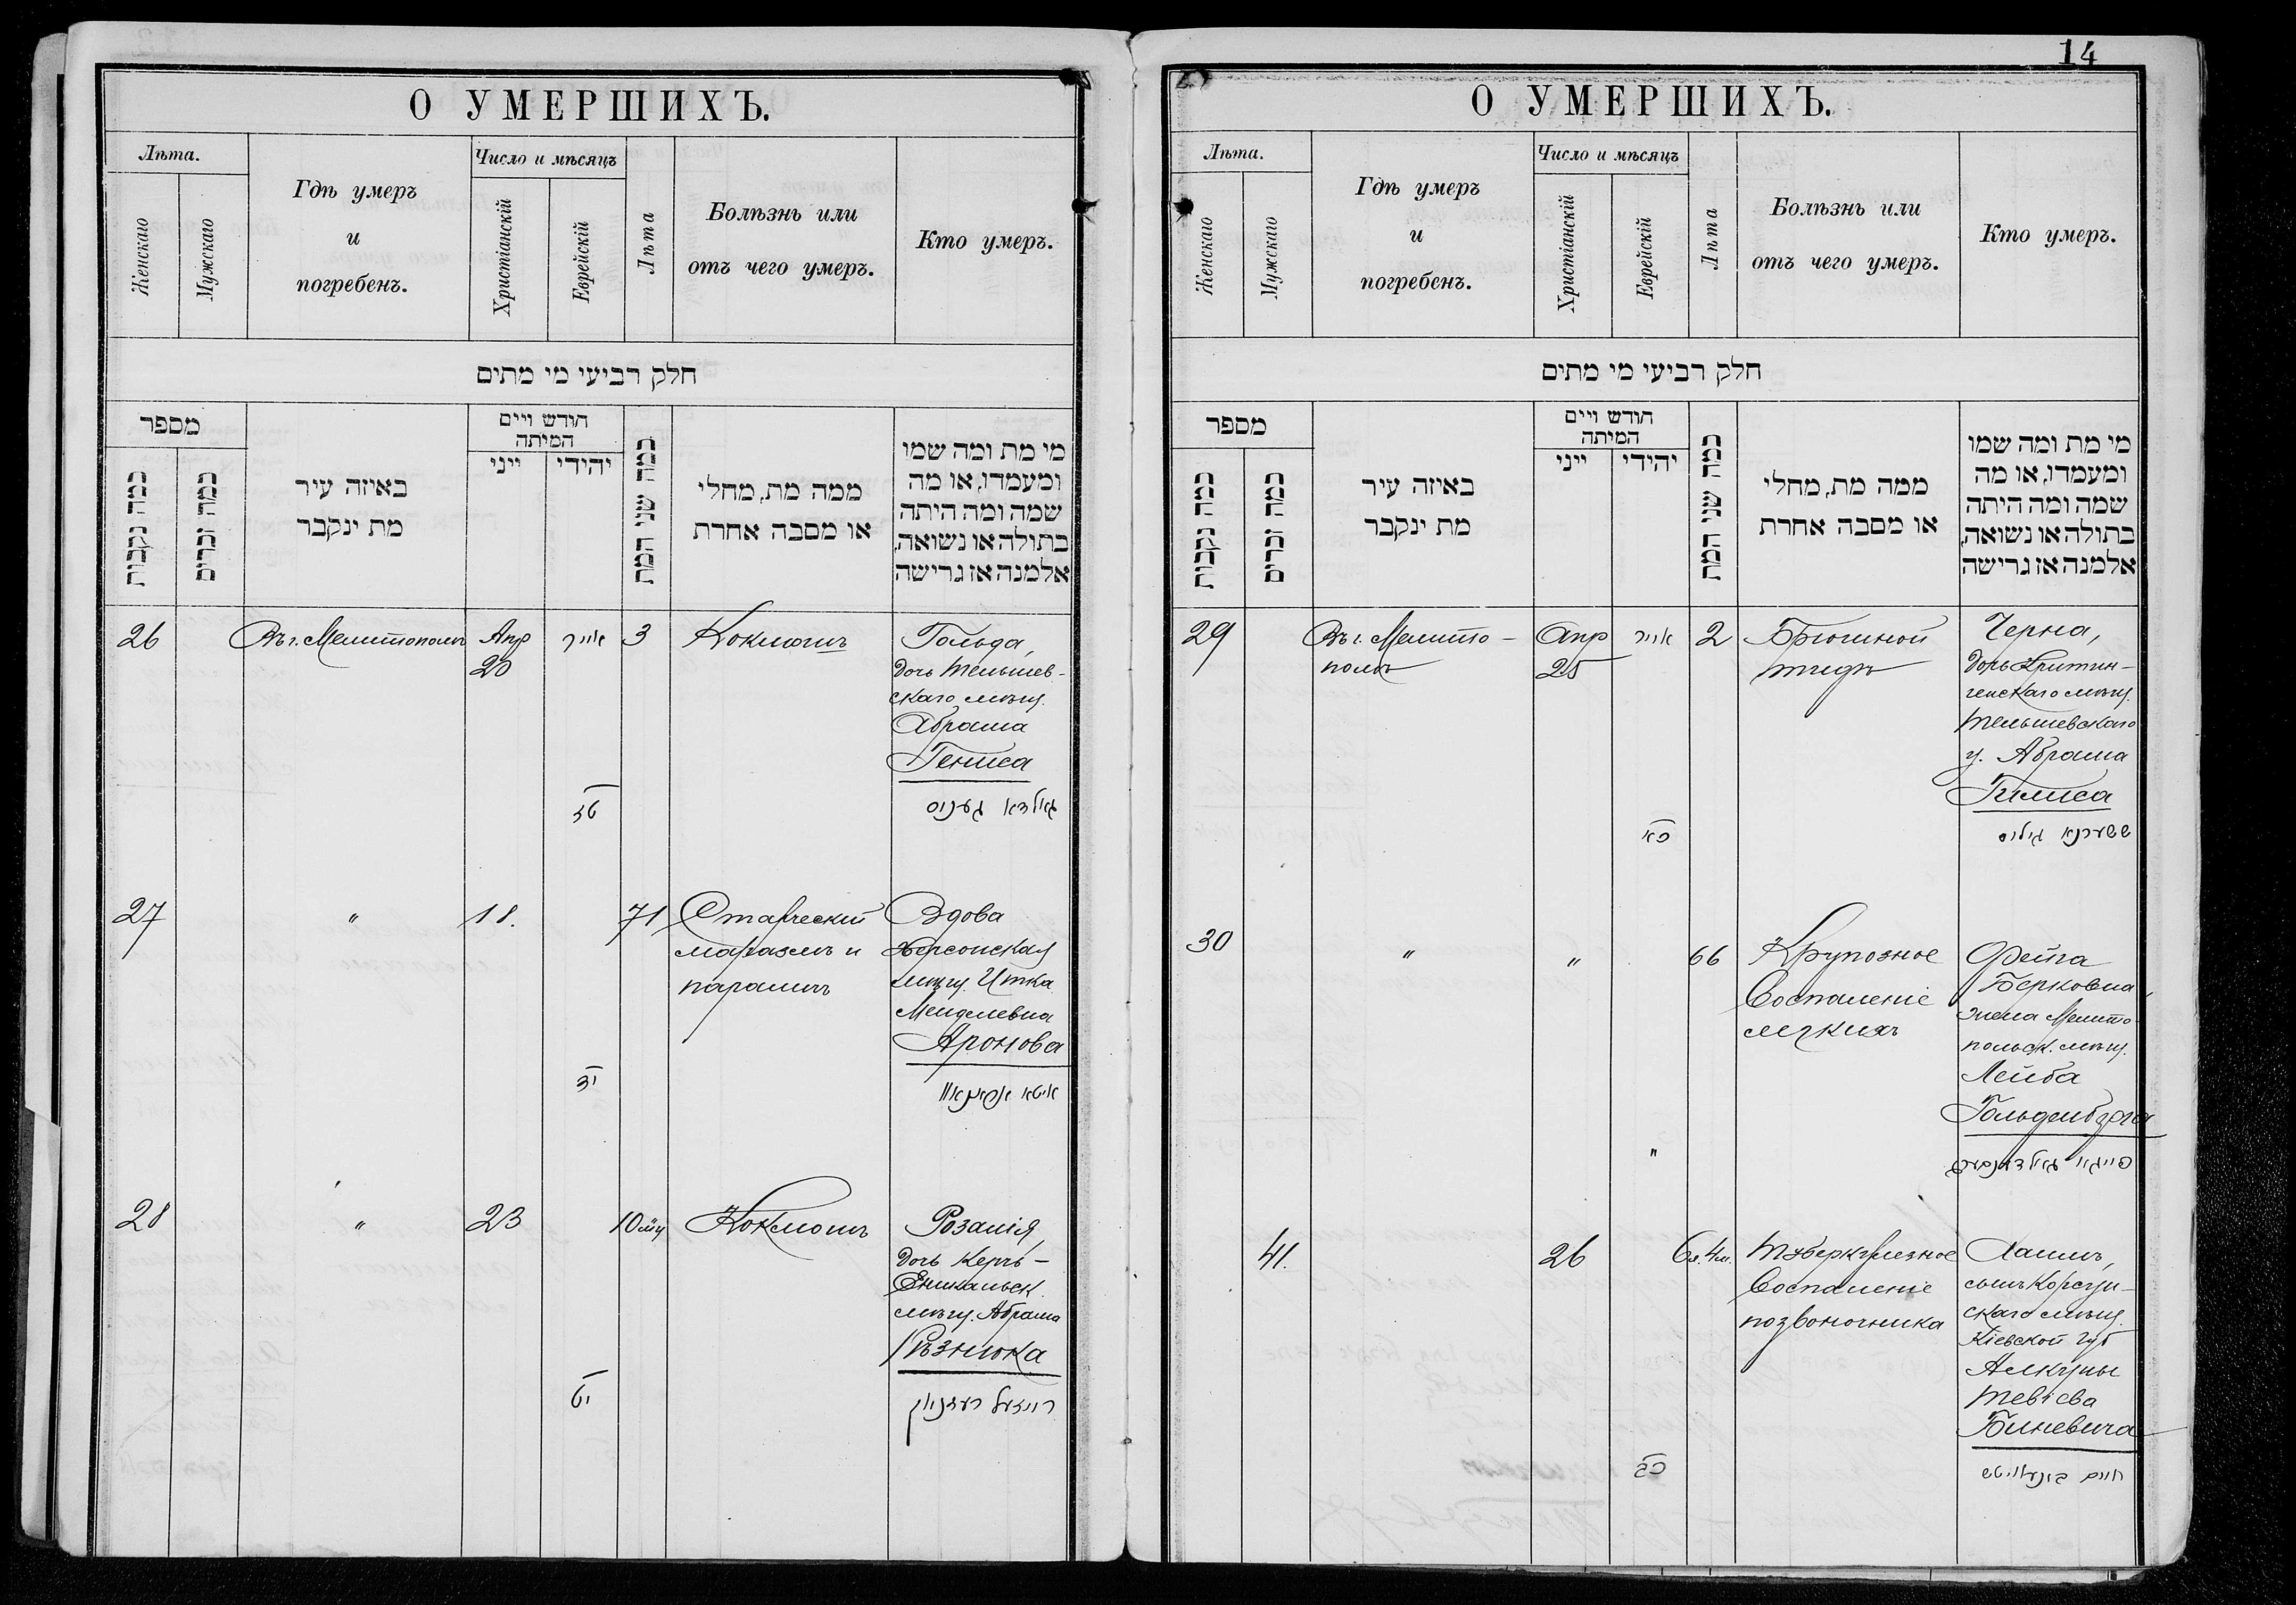 14
О УМЕРШИХЪ.
Лѣта.
Женскаго
Мужскаго
Гдѣ умеръ
и
погребенъ.
Число и мѣсяцъ
Христіанскій
Еврейскій
Лѣта
Болѣзнь или
отъ чего умеръ.
Кто умеръ.
חלק רביעי מי מתים
מספר
כמה נקבות
כמה זכרים
באיזה עיר
מת ינקבר
חודש ויים
המיתה
ייני
יהודי
כמה שני המת
ממה מת, מחלי
או מסבה אחרת
מי מת ומה שמו
ומעמדו, או מה
שמה ומה היתה
בתולה או נשואה,
אלמנה אז גרישה
26
Въ г. Мелитополѣ
Апр
20
אייר
טז
3
Коклюшъ
Гольда,
дочь Тельшев-
скаго мѣщ.
Абрама
Гениса
גאלדא געניס
27
"
18.
יד
71
Старческий
маразмъ и
параличъ
Вдова
Херсонская
мѣщ. Итка
Менделевна
Аронова
28
"
23
יט
10 мц
Коклюшъ
Розалія,
дочь Керчь-
Еникальск.
мѣщ. Абрама
Рѣзника
רייזעל רעזניק
О УМЕРШИХЪ.
Лѣта.
Женскаго
Мужскаго
Гдѣ умеръ
и
погребенъ.
Число и мѣсяцъ
Христіанскій
Еврейскій
Лѣта
Болѣзнь или
отъ чего умеръ.
Кто умеръ.
חלק רביעי מי מתים
מספר
כמה נקבות
כמה זכרים
באיזה עיר
מת ינקבר
חודש ויים
המיתה
ייני
יהודי
כמה שני המת
ממה מת, מחלי
או מסבה אחרת
מי מת ומה שמו
ומעמדו, או מה
שמה ומה היתה
בתולה או נשואה,
אלמנה אז גרישה
29
Въ г. Мелито-
полѣ
Апр
25
אייר
כא
2
Брюшной
тифъ
Черна,
дочь Критин-
генскаго мѣщ.
Тельшевскаго
у. Абрама
Гилиса
גיליס
30
"
"
"
66
Крупозное
Воспаленіе
легкихъ
Фейга
Берковна,
жена Мелито-
польск. мѣщ.
Лейба
Гольденберга
פייגא גאלדענבערג
41.
26
כב
6 л. 4 м.
Туберкулезное
Воспаленіе
позвоночника
Хаимъ,
сынъ Корсун-
скаго мѣщ.
Кіевской губ
Тевіева
Биневича
חיים בינעוויטש